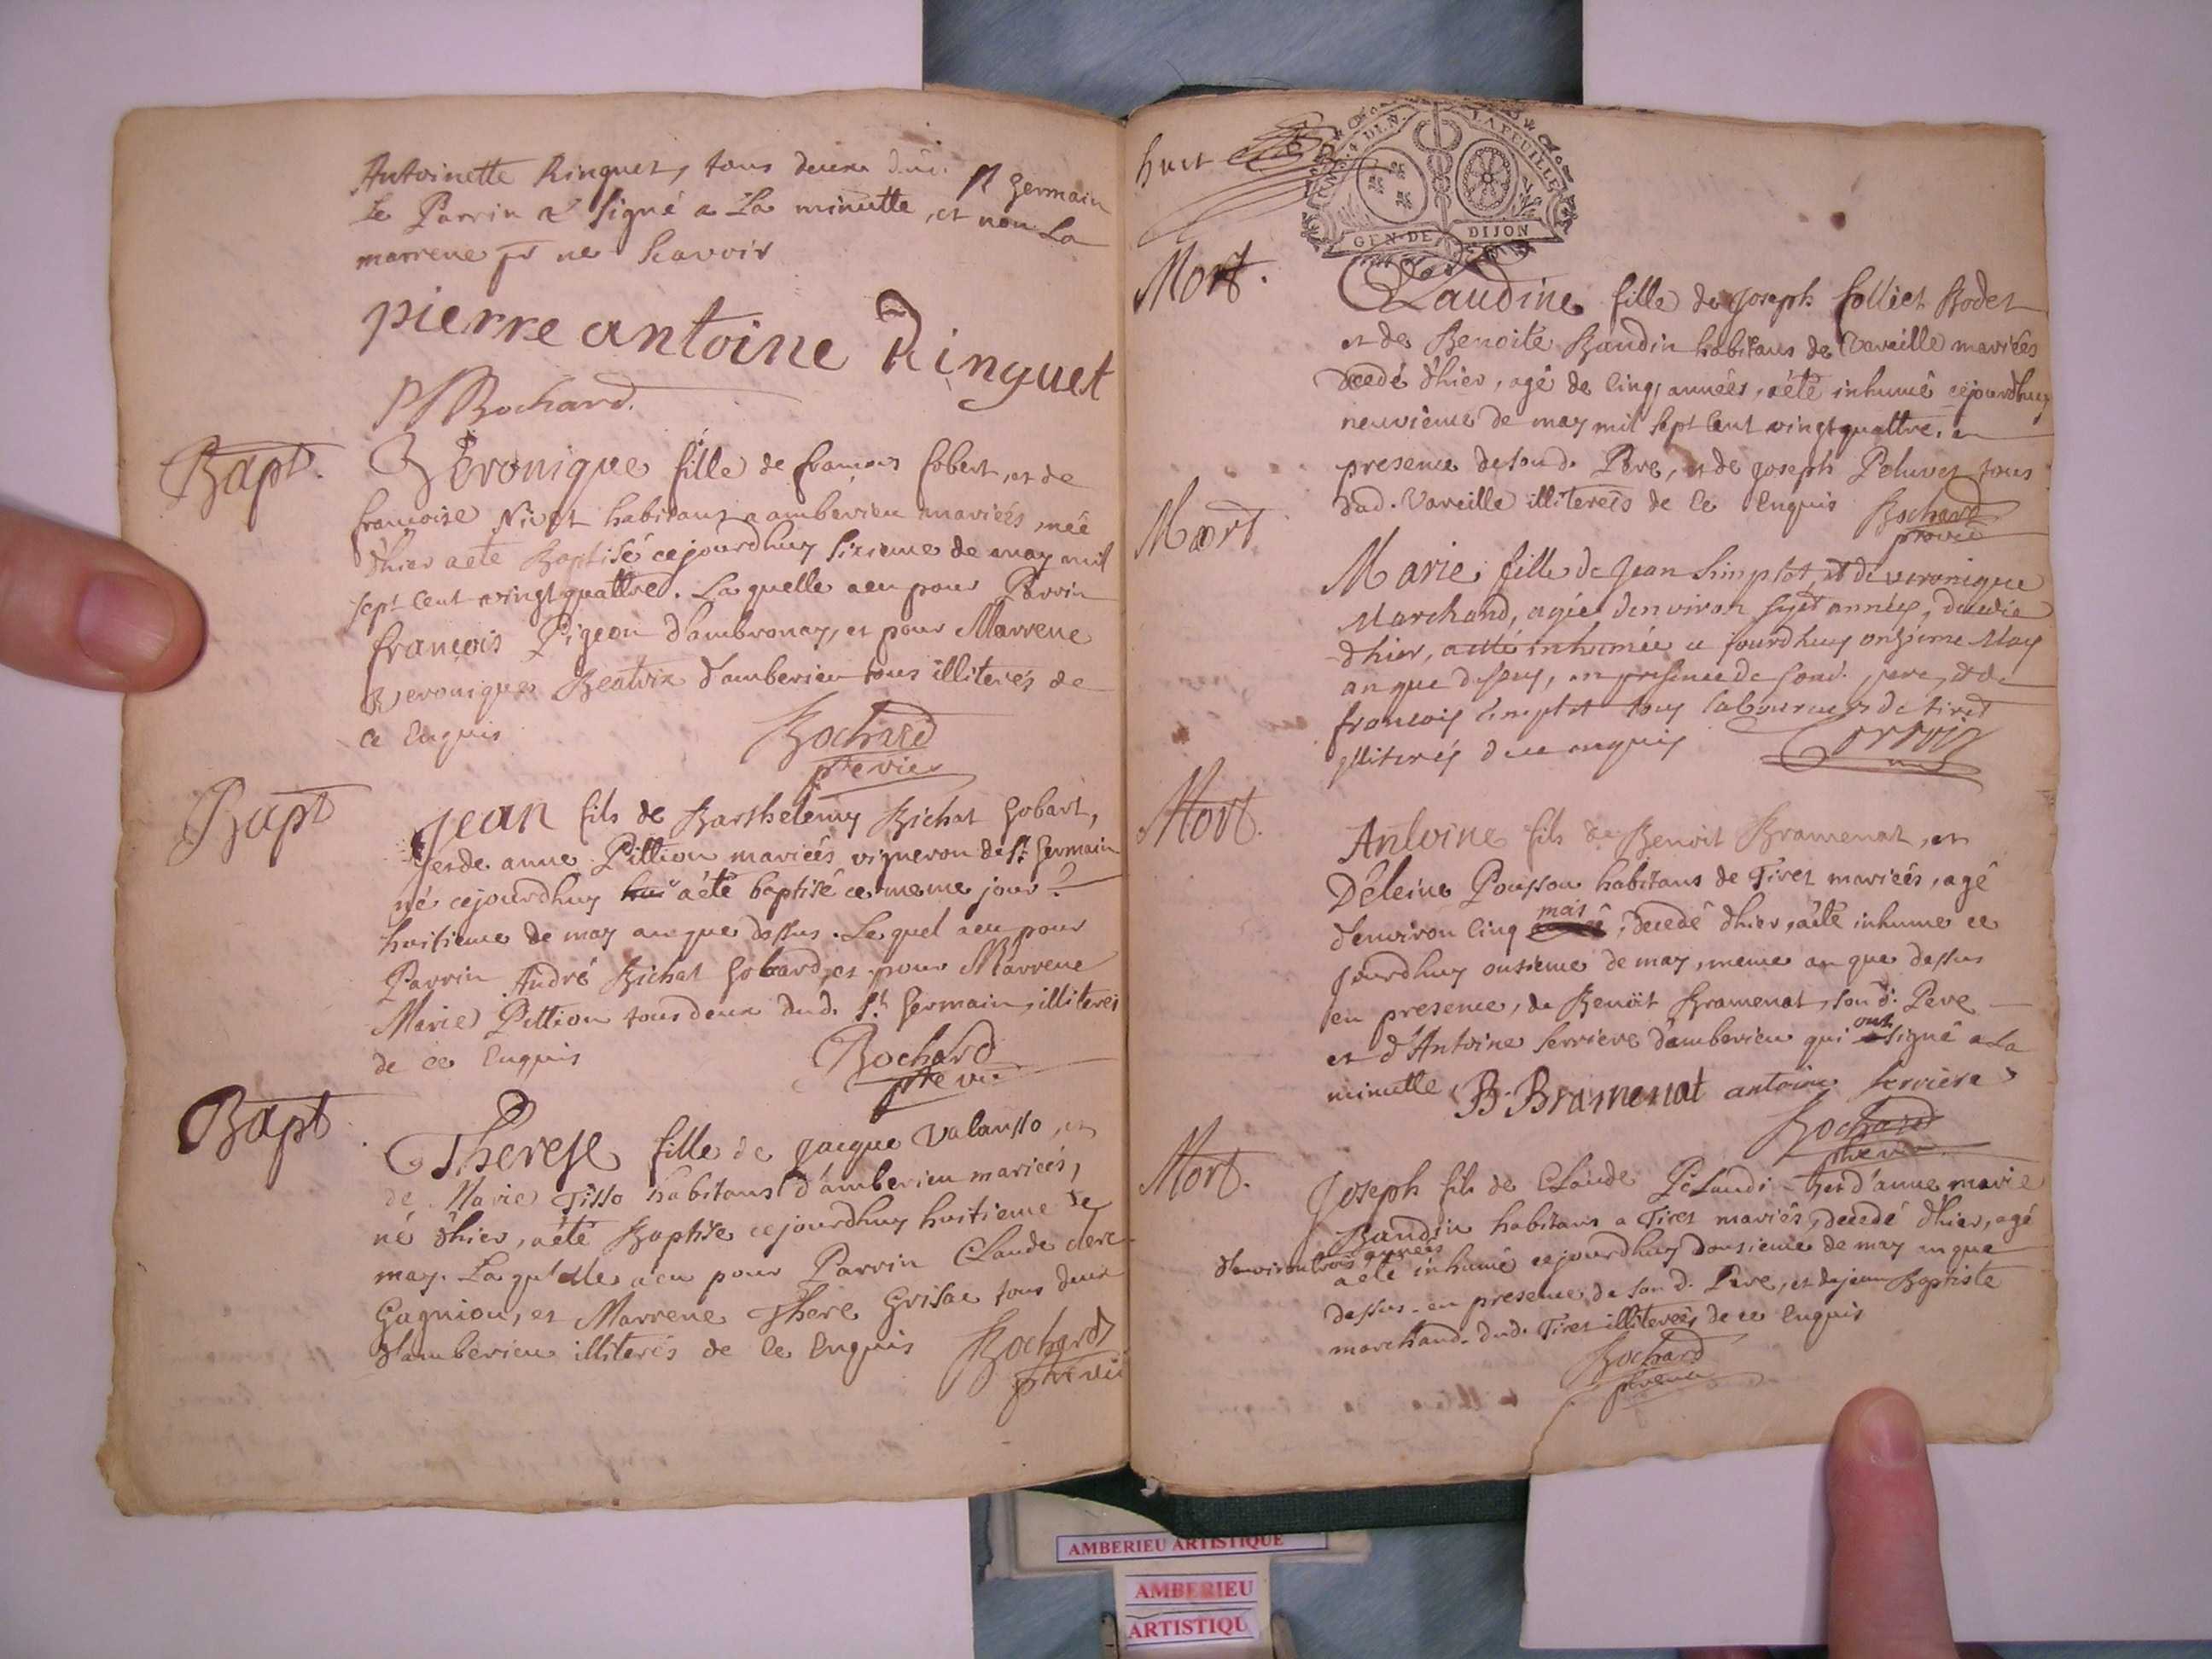 Antoinette Ringuet, tous deux dud. St Germain
Le Parrin a signé a La minutte, et non La
marrene pr ne scavoir
pierre antoine Ringuet
Bochard
Bapt.
Veronique fille de francois fobert, et de
francoise Nivet habitans a amberieu mariéés, néé
d'hier a eté Baptisé cejourdhuy sixieme de may mil
sept cent vingt quattre. Laquelle a eu pour Parrin
francois Pigeon d'ambronay, et pour Marrene
Veronique Beatrix d'amberieu tous illiterés de
ce Enquis
Bochard
ptre vic
Bapt
Jean fils de Barthelemy Bichat Gobart,
et de anne Pittion mariéés vigneron de St Germain
né cejourdhuy a été baptisé ce meme jour
huitieme de may an que dessus. Lequel a eu pour
Parrin André Bichat Gobard, et pour Marrene
Marie Pittion tous deux dud. St Germain, illiterés
de ce Enquis
Bochard
ptre vic
Bapt
Therese fille de Jacque Valansso, et
de Marie Tisso habitans d'amberieu mariéés,
né d'hier, a été Baptise cejourdhuy huitieme de
may. Laquelle a eu pour Parrin Claude clerc
Gagniou, et Marrene There Grisac tous deux
d'amberieu illiterés de ce Enquis
Bochard
ptre vic
huit
LA FEUILLE
GEN. DE DIJON
Mort.
Claudine fille de Joseph folliet Bodet
et de Benoite Baudin habitans de Vareille mariéés
decedé d'hier, agé de cinq années, a été inhumé cejourdhuy
neuvieme de may mil sept cent vingt quattre, en
presence de son d. Pere, et de Joseph Peluvet tous
dud. Vareille illiterés de ce Enquis
Bochard
ptre vic
Mort
Marie fille de Jean Simplot, et de veronique
Marchand, agée denviron sept années, decedée
d'hier, a eté inhumée ce jourdhuy onzieme May
an que dessus, en presence de son d. pere, et de
francois Simplot tous laboureurs de tiret
illiterés de ce enquis
Mort.
Antoine fils de Benoit Bramenat, et
D'éleine Pousson habitans de Tiret mariéés, agé
d'environ cinq mois, decedé d'hier, a été inhumé ce
jourdhuy onsieme de may, meme an que dessus
en presence, de Benoit Bramenat, son d. Pere
et d'Antoine Serriere d'amberieu qui ont signé a La
minutte B. Bramenat antoine serriere
Bochard
ptre vic
Mort.
Joseph fils de Claude et d'anne marie
Baudin habitans a Tiret mariés, decedé d'hier, agé
d'environ trois années
a été inhumé cejourdhuy dousieme de may an que
dessus. en presence de son d. Pere, et de jean Baptiste
marchand. dud. Tiret illiterés de ce Enquis
Bochard
ptre vic
AMBERIEU ARTISTIQUE
AMBERIEU
ARTISTIQU